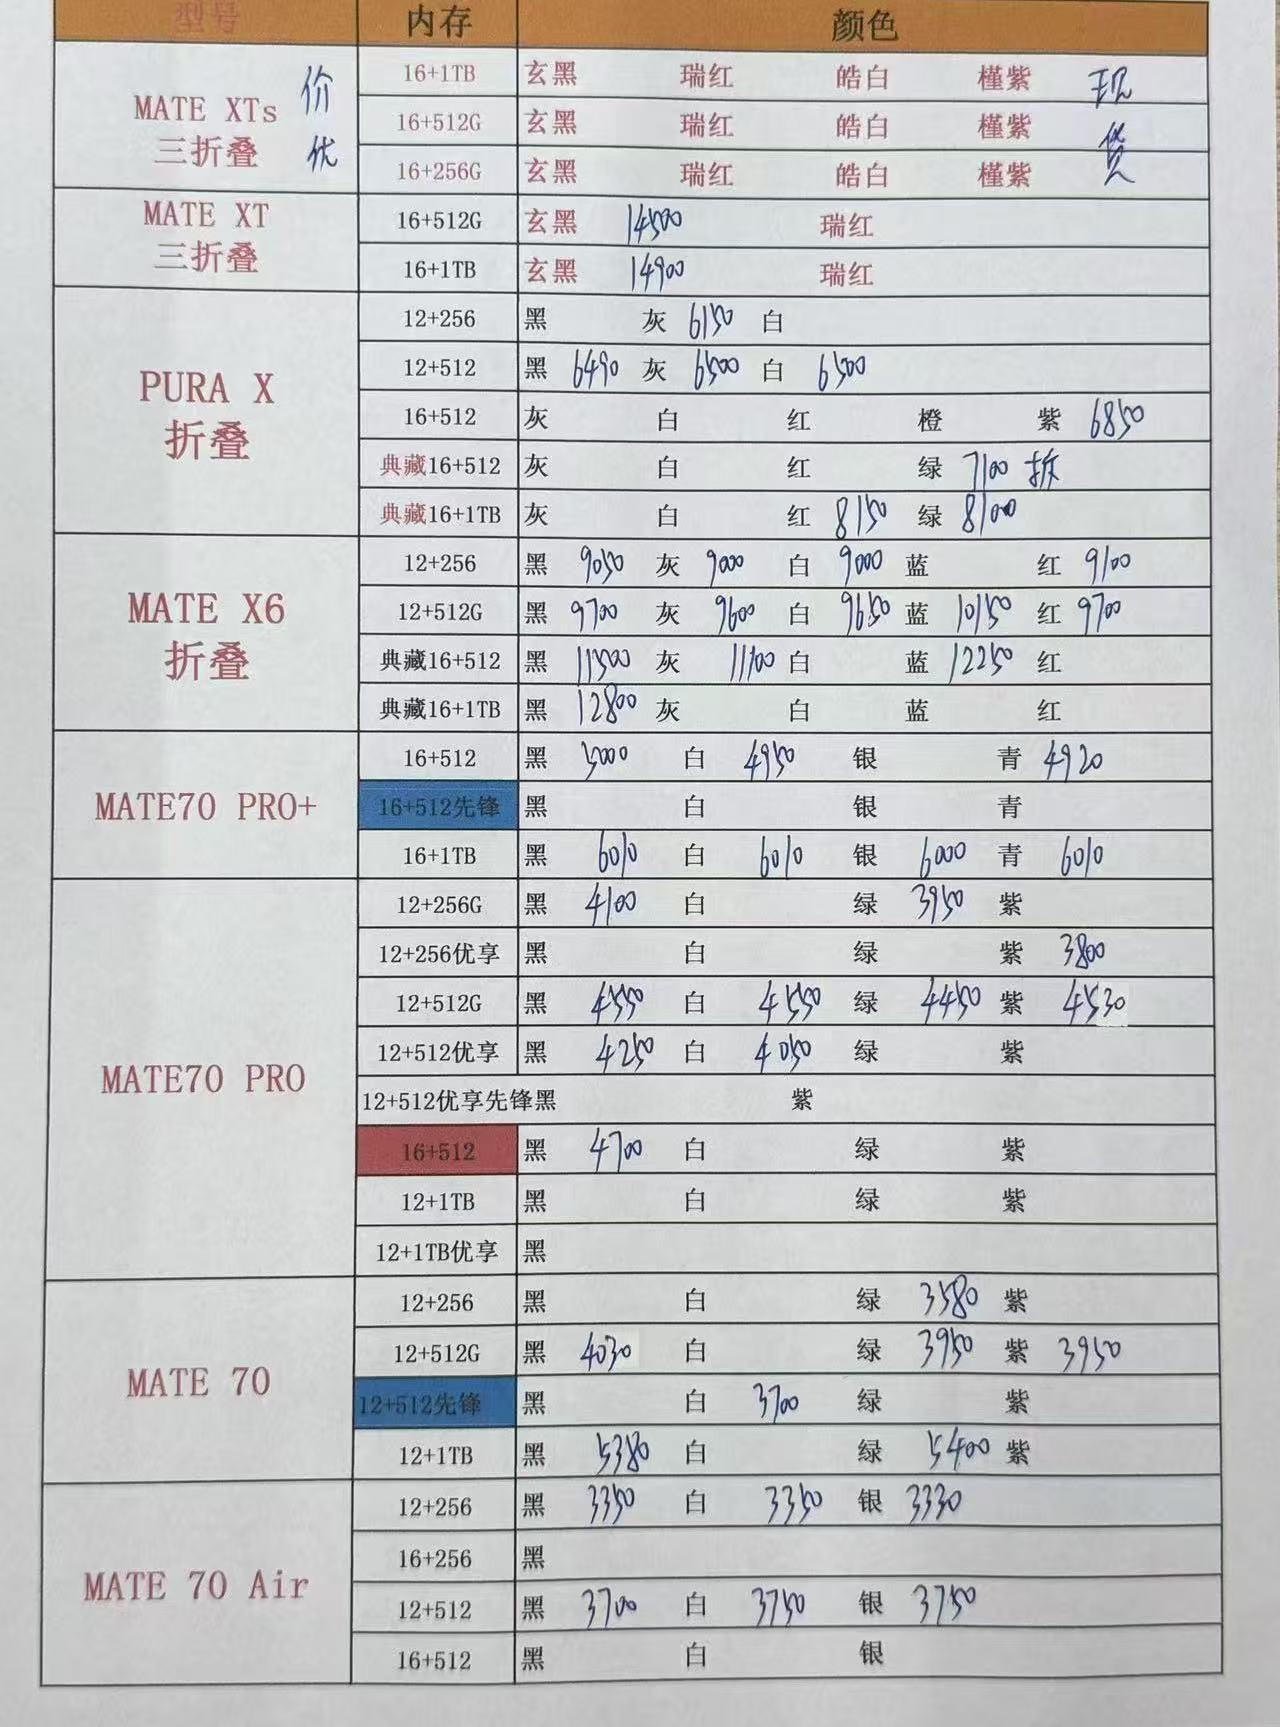 型号 内存 颜色
MATE XTs 三折叠 价优 现货
16+1TB 玄黑 瑞红 皓白 槿紫
16+512G 玄黑 瑞红 皓白 槿紫
16+256G 玄黑 瑞红 皓白 槿紫
MATE XT 三折叠
16+512G 玄黑 14500 瑞红
16+1TB 玄黑 14900 瑞红
PURA X 折叠
12+256 黑 灰 6150 白
12+512 黑 6490 灰 6500 白 6500
16+512 灰 白 红 橙 紫 6850
典藏16+512 灰 白 红 绿 7100 拆
典藏16+1TB 灰 白 红 8150 绿 8100
MATE X6 折叠
12+256 黑 9050 灰 9000 白 9000 蓝 红 9100
12+512G 黑 9700 灰 9600 白 9650 蓝 10150 红 9700
典藏16+512 黑 11500 灰 11100 白 蓝 12250 红
典藏16+1TB 黑 12800 灰 白 蓝 红
MATE70 PRO+
16+512 黑 5000 白 4950 银 青 4920
16+512先锋 黑 白 银 青
16+1TB 黑 6010 白 6010 银 6000 青 6010
MATE70 PRO
12+256G 黑 4100 白 绿 3950 紫
12+256优享 黑 白 绿 紫 3800
12+512G 黑 4550 白 4550 绿 4450 紫 4530
12+512优享 黑 4250 白 4050 绿 紫
12+512优享先锋黑 紫
16+512 黑 4700 白 绿 紫
12+1TB 黑 白 绿 紫
12+1TB优享 黑
MATE 70
12+256 黑 白 绿 3580 紫
12+512G 黑 4030 白 绿 3950 紫 3950
12+512先锋 黑 白 3700 绿 紫
12+1TB 黑 5380 白 绿 5400 紫
MATE 70 Air
12+256 黑 3350 白 3350 银 3330
16+256 黑
12+512 黑 3700 白 3750 银 3750
16+512 黑 白 银